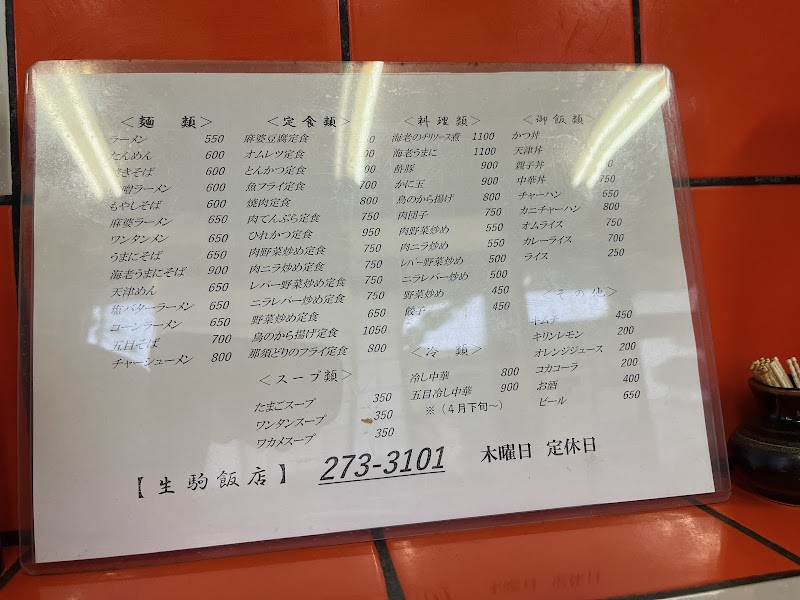 ＜麺　類＞
ラーメン 550
たんめん 600
やきそば 600
ラーメン 600
もやしそば 600
麻婆ラーメン 650
ワンタンメン 650
うまにそば 650
海老うまにそば 900
天津めん 650
塩バターラーメン 650
コーンラーメン 650
五目そば 700
チャーシューメン 800
＜定食類＞
麻婆豆腐定食
オムレツ定食
とんかつ定食
魚フライ定食 700
焼肉定食 800
肉てんぷら定食 750
ひれかつ定食 950
肉野菜炒め定食 750
肉ニラ炒め定食 750
レバー野菜炒め定食 750
ニラレバー炒め定食 750
野菜炒め定食 650
鳥のから揚げ定食 1050
那須どりのフライ定食 800
＜スープ類＞
たまごスープ 350
ワンタンスープ 350
ワカメスープ 350
＜料理類＞
海老のチリソース煮 1100
海老うまに 1100
酢豚 900
かに玉 900
鳥のから揚げ 800
肉団子 750
肉野菜炒め 550
肉ニラ炒め 550
レバー野菜炒め 500
ニラレバー炒め 500
野菜炒め 450
餃子 450
＜冷　類＞
冷し中華 800
五目冷し中華 900
※（４月下旬～）
＜御飯類＞
かつ丼
天津丼
親子丼
中華丼
チャーハン 650
カニチャーハン 800
オムライス 750
カレーライス 700
ライス 250
＜その他＞
キムチ 450
キリンレモン 200
オレンジジュース 200
コカコーラ 200
お酒 400
ビール 650
【生駒飯店】 273-3101 木曜日 定休日